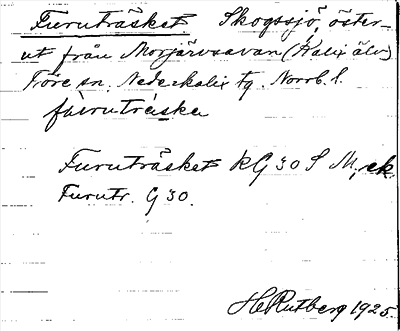 Furuträsket. Skogssjö, öster-
ut från Morjärvsavan (Kalix älv)
Töre sn. Nederkalix tg. Norrb. l.
furuträske
Furuträsket kG 30 S M, ek.
Furutr. G 30.
H Rutberg 1925